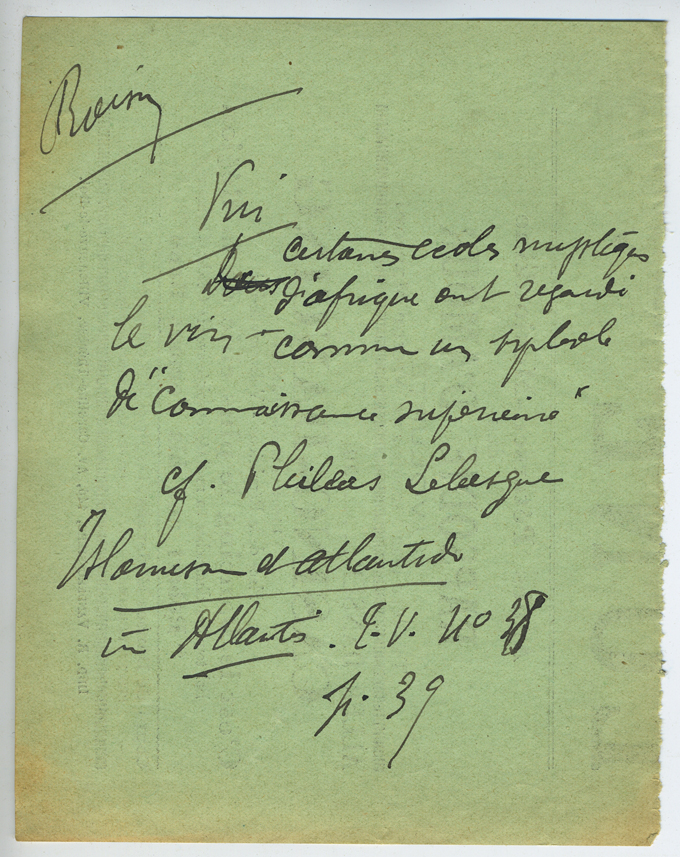 Raisin
Vin
certaines ecoles mystiques
d'afrique ont regardé
le vin comme un symbole
de "connaissance supérieure"
cf. Philéas Lebesgue
Islamisme et Atlantide
in Atlantis. T.V. No 38
p. 39